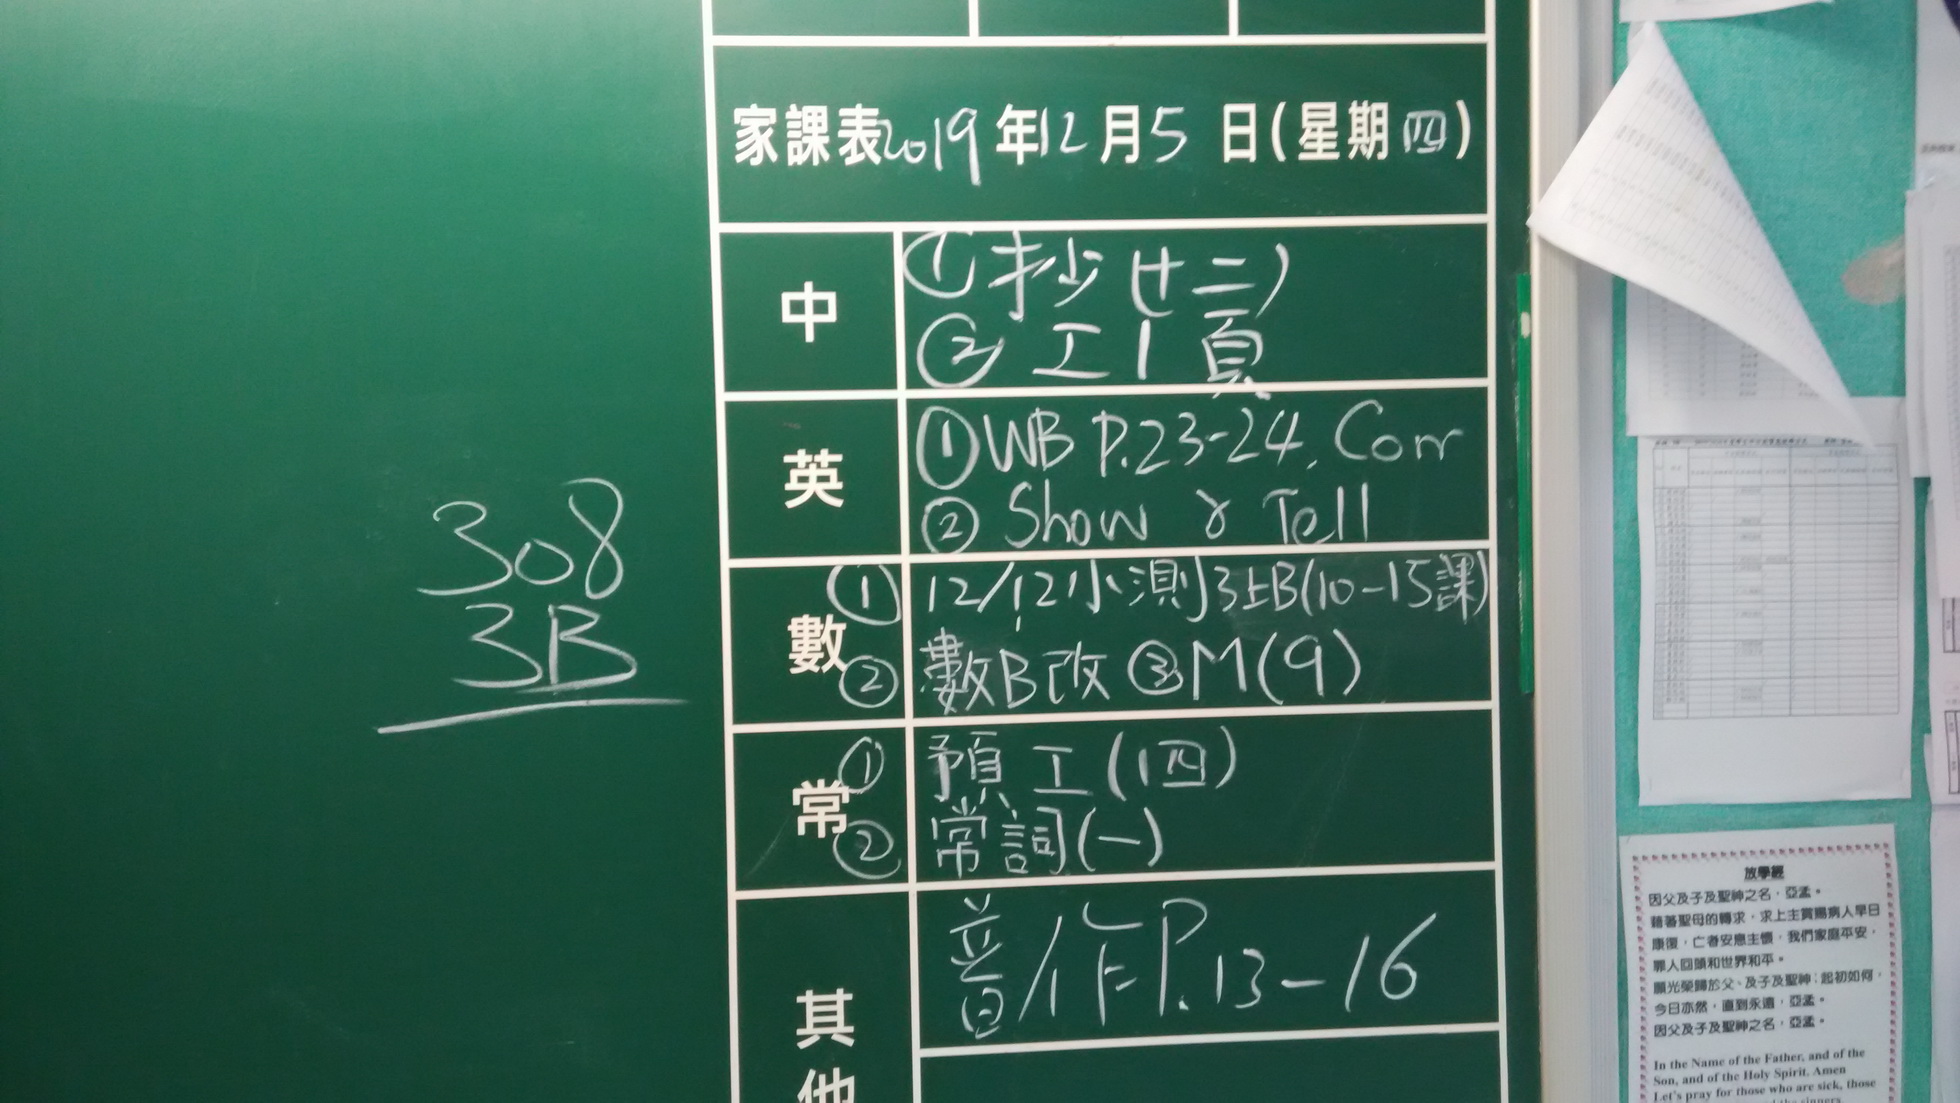 家課表2019年12月5日(星期四)
中
①抄(十二)
②工1頁
英
①WB P.23-24. Corr
② Show & Tell
數
① 12/12小測3上B(10-15課)
② 數B改 ③M(9)
常
① 預工(1四)
② 常詞(一)
其他
普/作P.13-16
308
3B
放學經
因父及子及聖神之名，亞孟。
藉著聖母的轉求，求上主賞賜病人早日
康復，亡者安息主懷，我們家庭平安，
罪人回頭和世界和平。
願光榮歸於父、及子及聖神；起初如何，
今日亦然，直到永遠，亞孟。
因父及子及聖神之名，亞孟。
In the Name of the Father, and of the
Son, and of the Holy Spirit. Amen
Let's pray for those who are sick, those